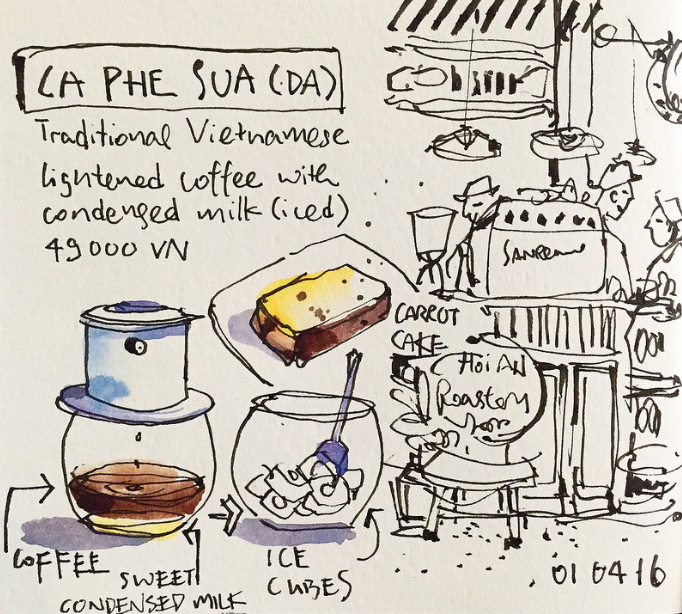 CA PHE SUA (DA)
Traditional Vietnamese
lightened coffee with
condensed milk (iced)
49 000 VN
SANREMO
CARROT
CAKE
Hoi AN
Roastery
COFFEE
SWEET
CONDENSED MILK
ICE
CUBES
01 04 16